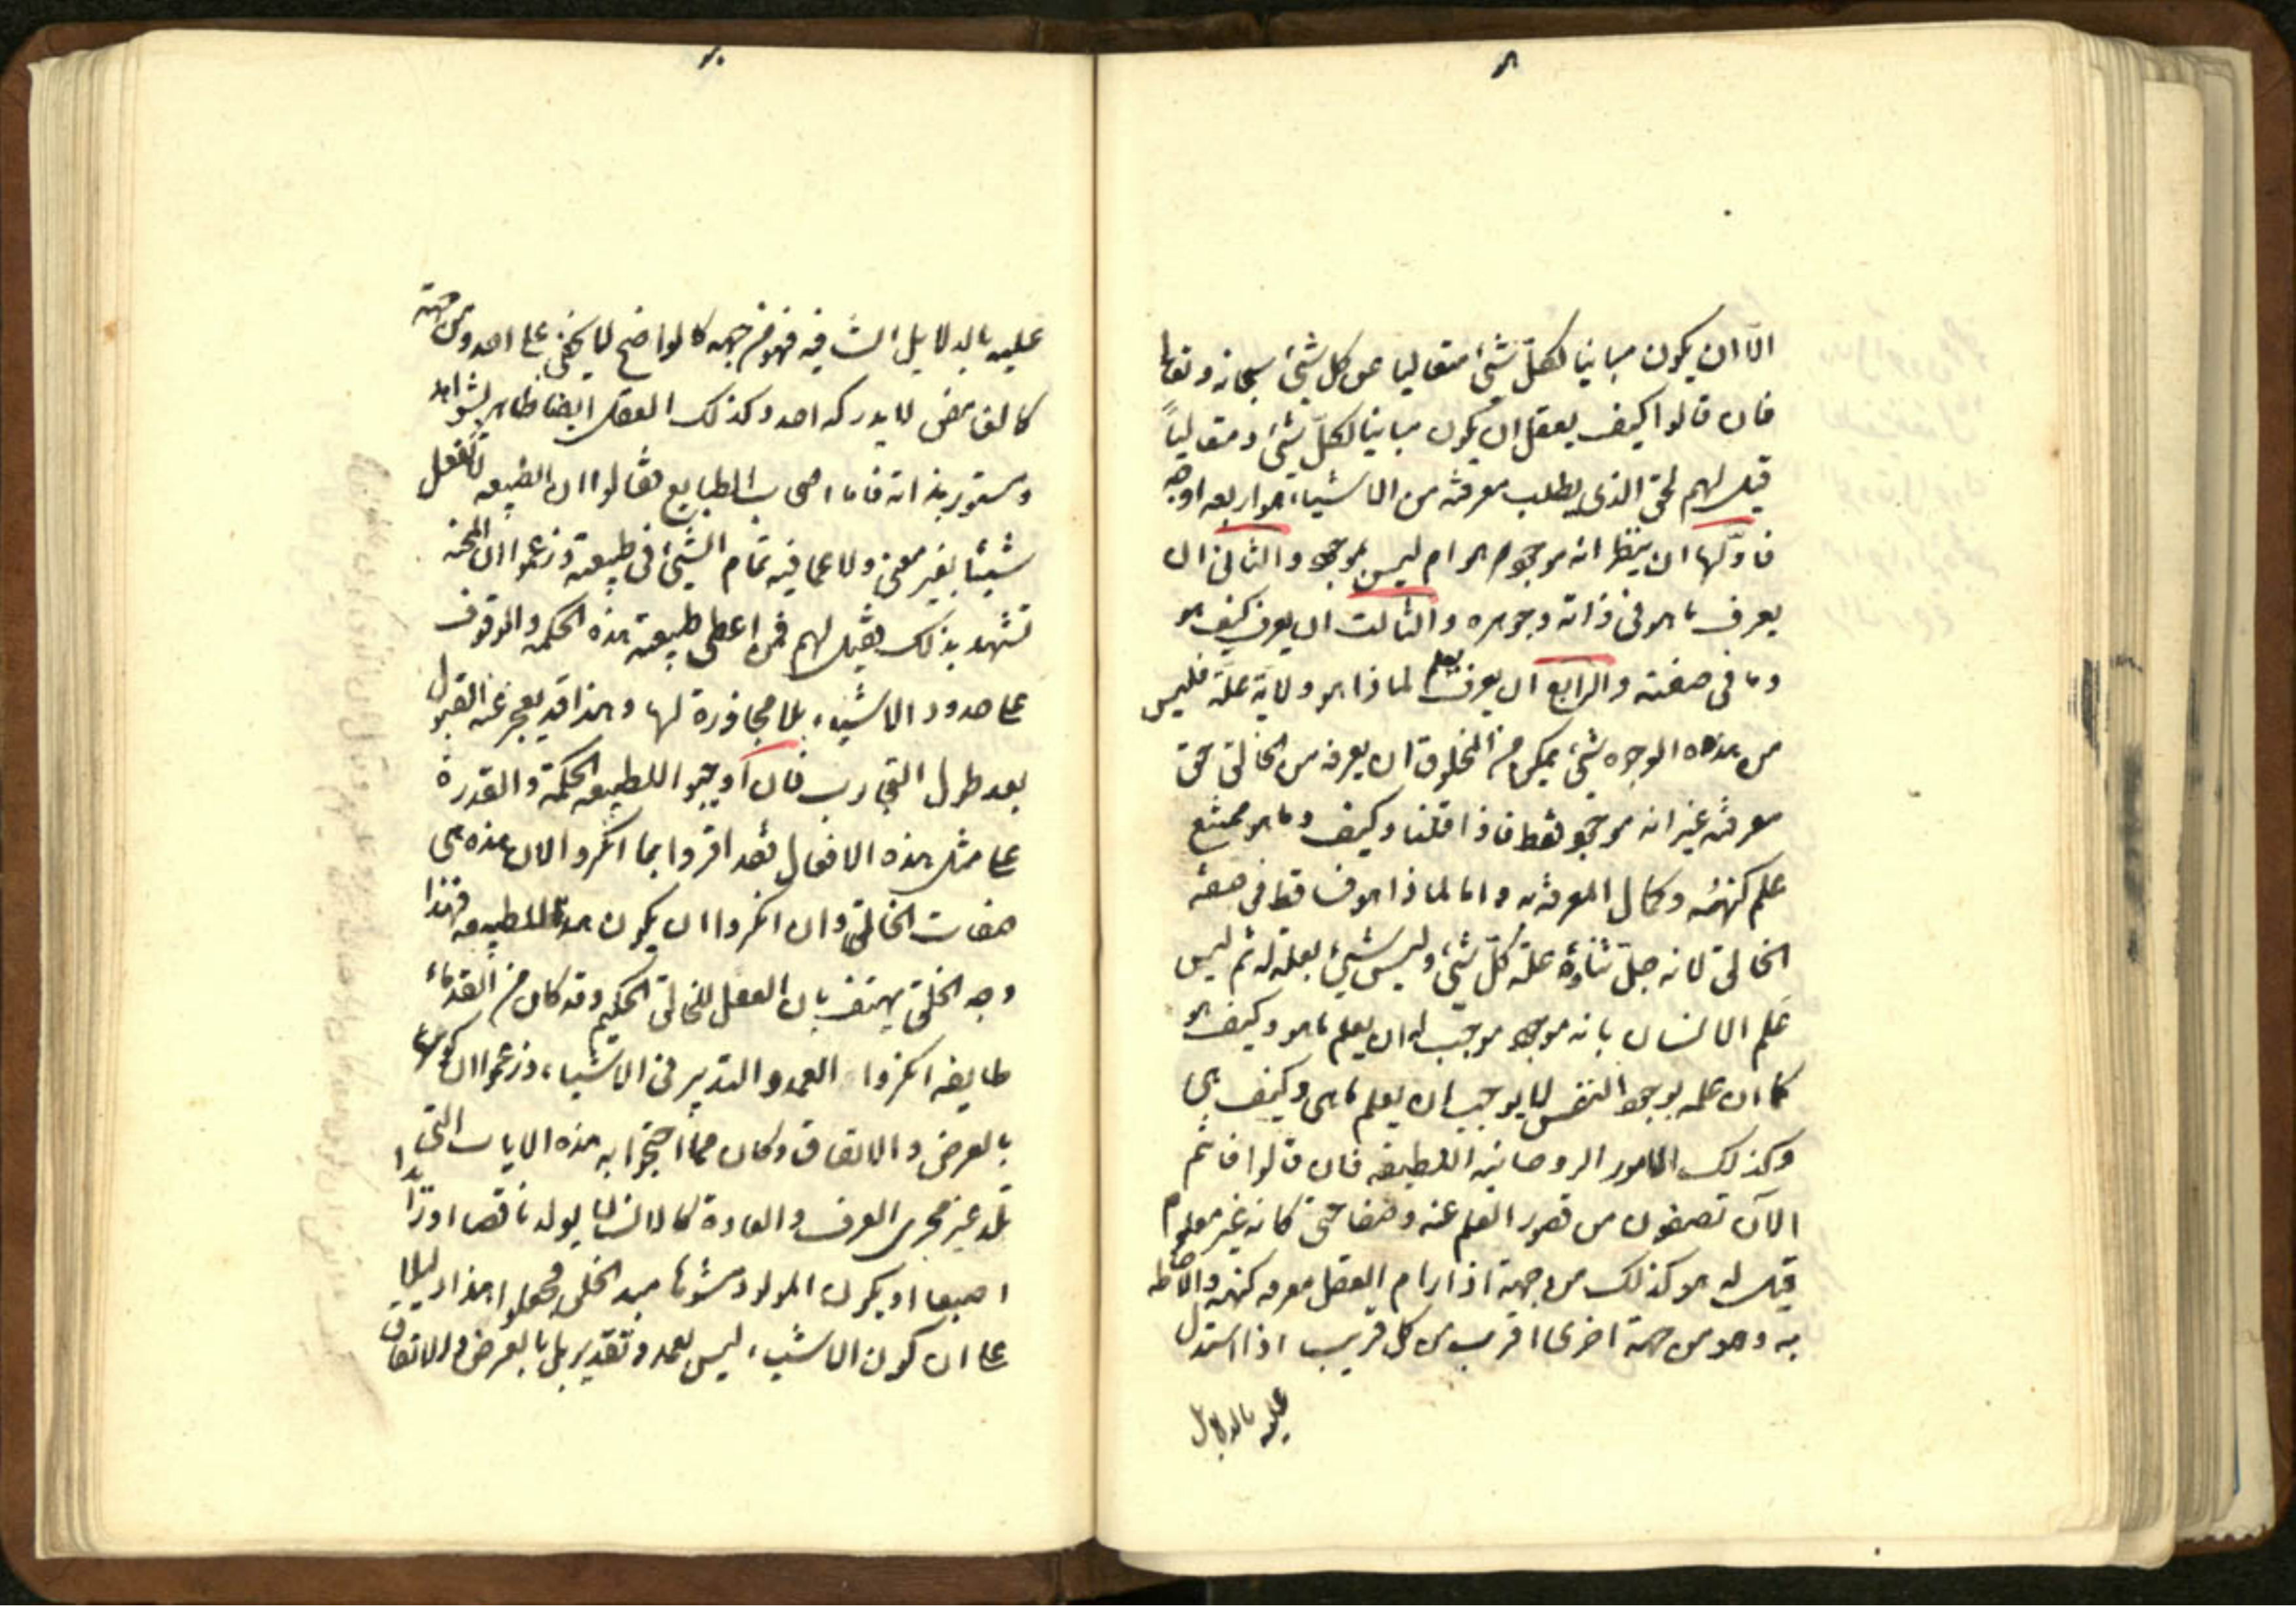 الّا ان يكون مباينا لكلّ شئ متعاليا عن كل شئ سبحانه وتعالى
فان قالوا كيف يعقل ان يكون مباينا لكلّ شئ ومتعالياً
قيل لهم الحق الذى يطلب معرفته من الاشياء هو اربعه اوجه
فاوّلها ان ينظر انه موجود هو ام ليس بموجود والثانى ان
يعرف ما هو فى ذاته وجوهره والثالث ان يعرف كيف هو
وما فى صفته والرابع ان يعرف يعلم لماذا هو ولاية علّة فليس
من هذه الوجوه شئ يمكن من المخلوق ان يعرفه من الخالق حق
معرفته غير انه موجود فقط فاذا قلنا وكيف وما هو ممتنع
علم كنهه وكمال المعرفة به واما لماذا هو فساقط فى صفة
الخالق لانه جلّ ثناؤه علّة كلّ شئ وليس شئ بعلة له ثم ليس
علم الانسان بانه موجود موجب له ان يعلم ما هو وكيف هو
كما ان علمه بوجود النفس لا يوجب ان يعلم ما هى وكيف هى
وكذلك الامور الروحانيه اللطيفه فان قالوا فانتم
الآن تصفون من قصور العلم عنه وصفا حتى كانه غير معلوم
قيل له هو كذلك من جهة اذا رام العقل معرفه كنهه والاحاطه
به وهو من جهة اخرى اقرب من كل قريب اذا استدل
عليه بالدلايل
عليه بالدلايل الشافيه فهو من جهه كالواضح لا يخفى على احد ومن جهة
كالغامض لا يدركه احد وكذلك العقل ايضا ظاهر بشواهد
ومستور بذاته فاما اصحاب الطبايع فقالوا ان الطبيعه لا تفعل
شيئا بغير معنى ولا عما فيه تمام الشئ فى طبيعته وزعموا ان المحنه
تشهد بذلك فقيل لهم فمن اعطى طبيعه هذه الحكمه والوقوف
على حدود الاشياء بلا مجاوزة لها وهذا قد يعجز عنه العقول
بعد طول التجارب فان اوجبوا للطبيعه الحكمة والقدرة
على مثل هذه الافعال فقد اقروا بما انكروا لان هذه هى
صفات الخالق وان انكروا ان يكون هذا للطبيعه فهذا
وجه الخلق يهتف بان الفعل للخالق الحكيم وقد كان من القدماء
طايفه انكروا العمد والتدبير فى الاشياء وزعموا ان كونها
بالعرض والاتفاق وكان مما احتجوا به هذه الايات التى
تلد غير مجرى العرف والعادة كالانسان يولد ناقصا او زايدا
اصبعا او يكون المولود مشوها مبدل الخلق فجعلوا هذا دليلا
على ان كون الاشياء ليس بعمد وتقدير بل بالعرض والاتفاق